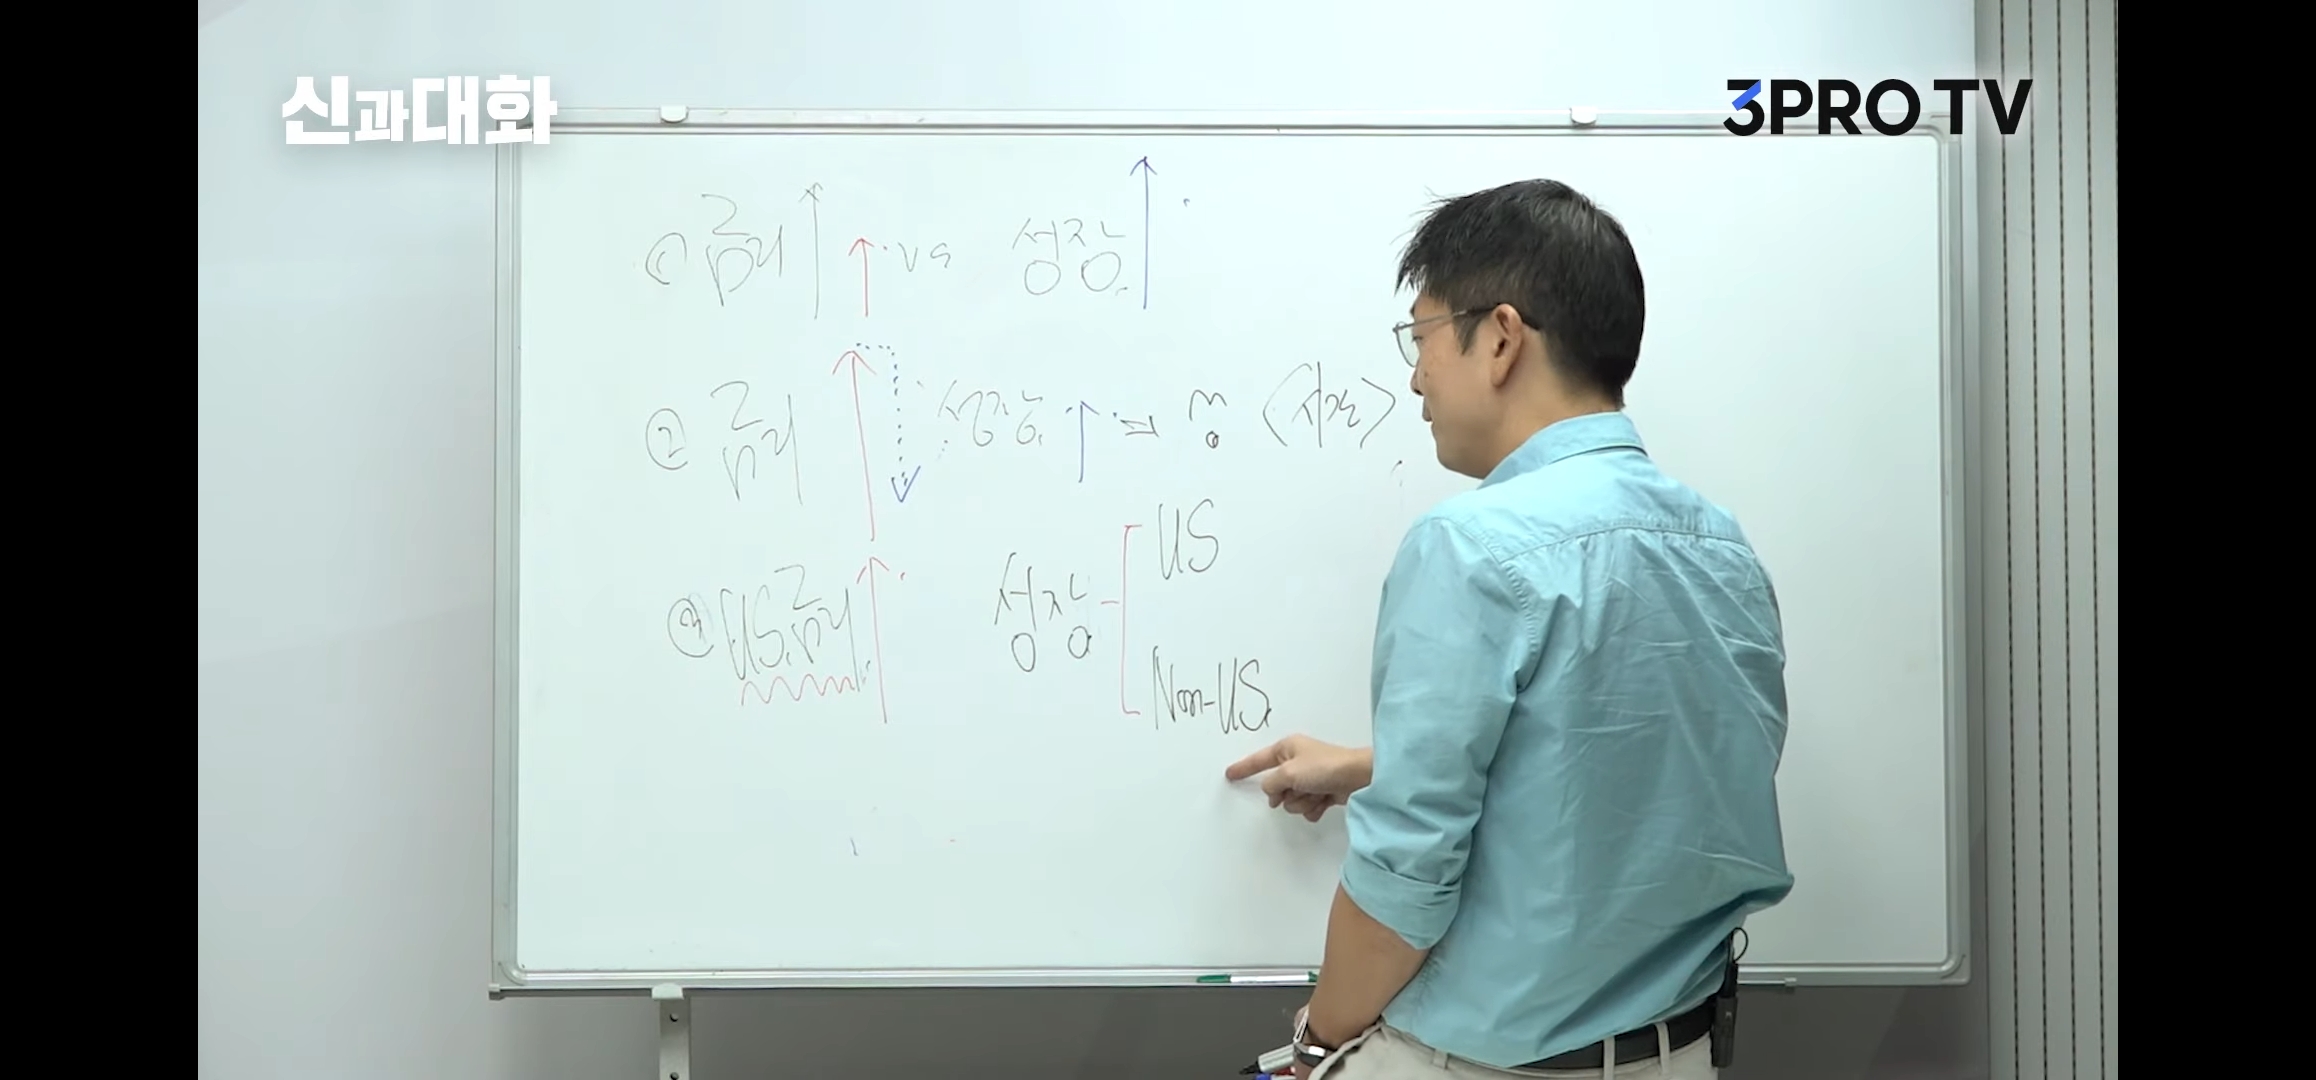 신과대화
3PRO TV
① 금리 vs 성장
② 금리 성장 ⇒
③ US. 금리 성장
US
Non-US.